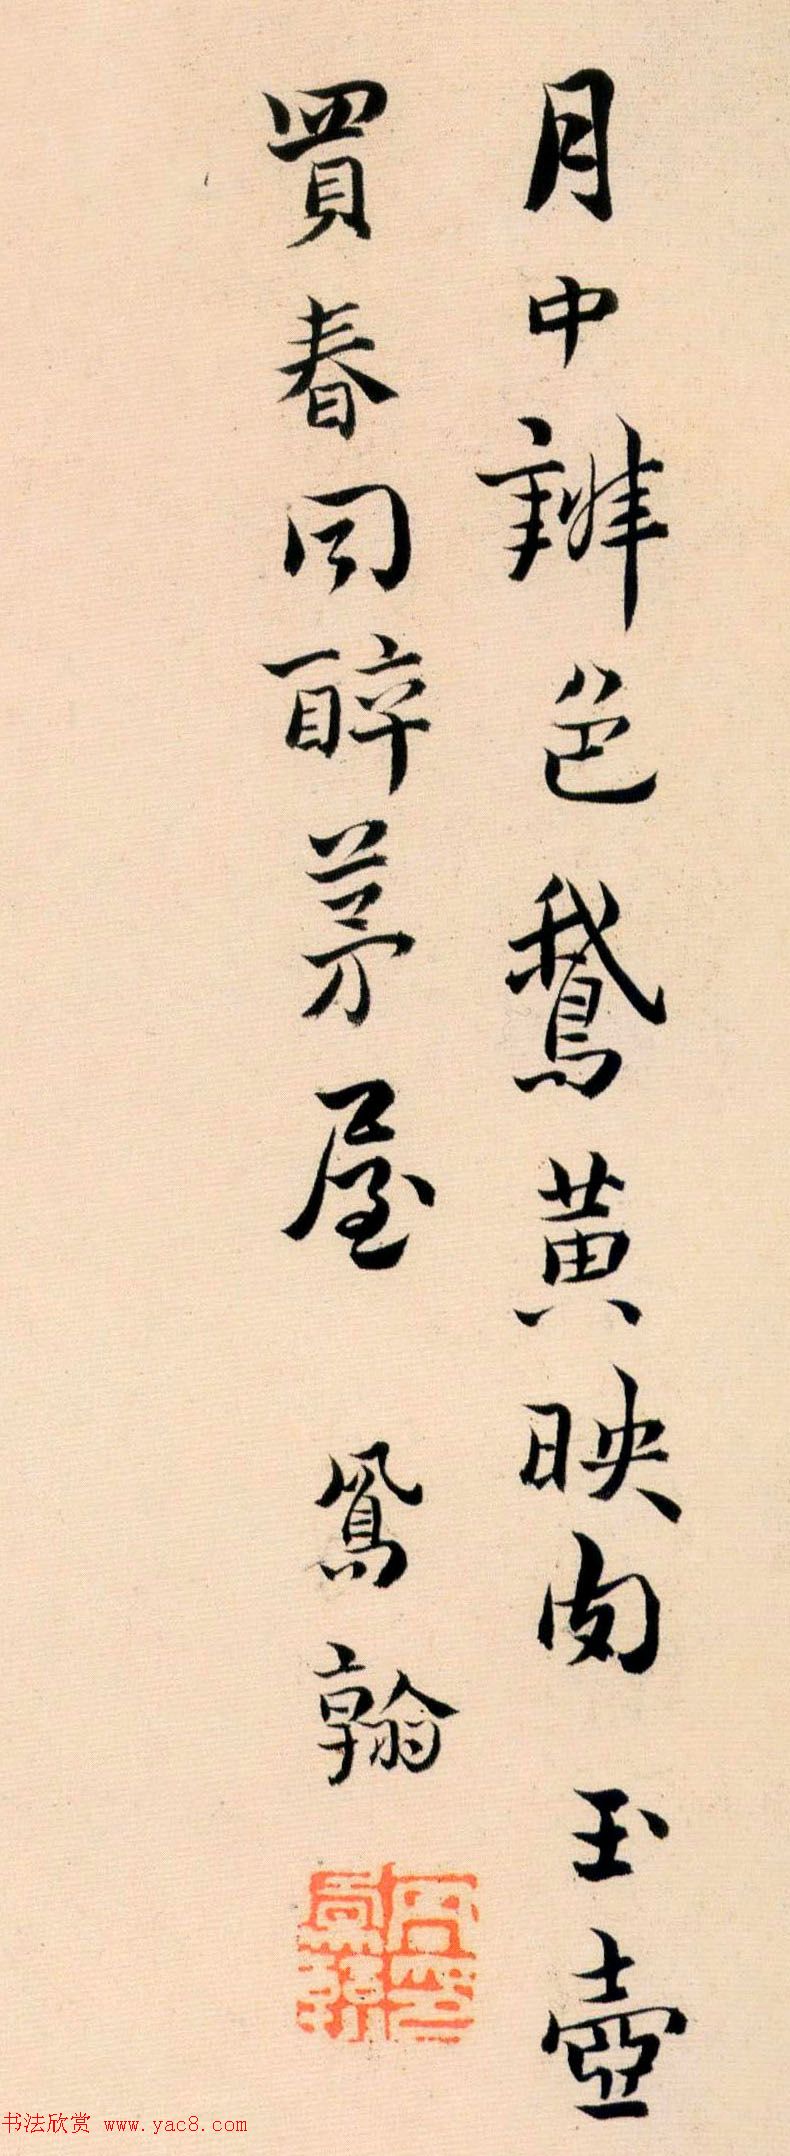 月中辨色鵞黄映肉玉壺
買春同醉茅屋 鳳翰
书法欣赏 www.yac8.com